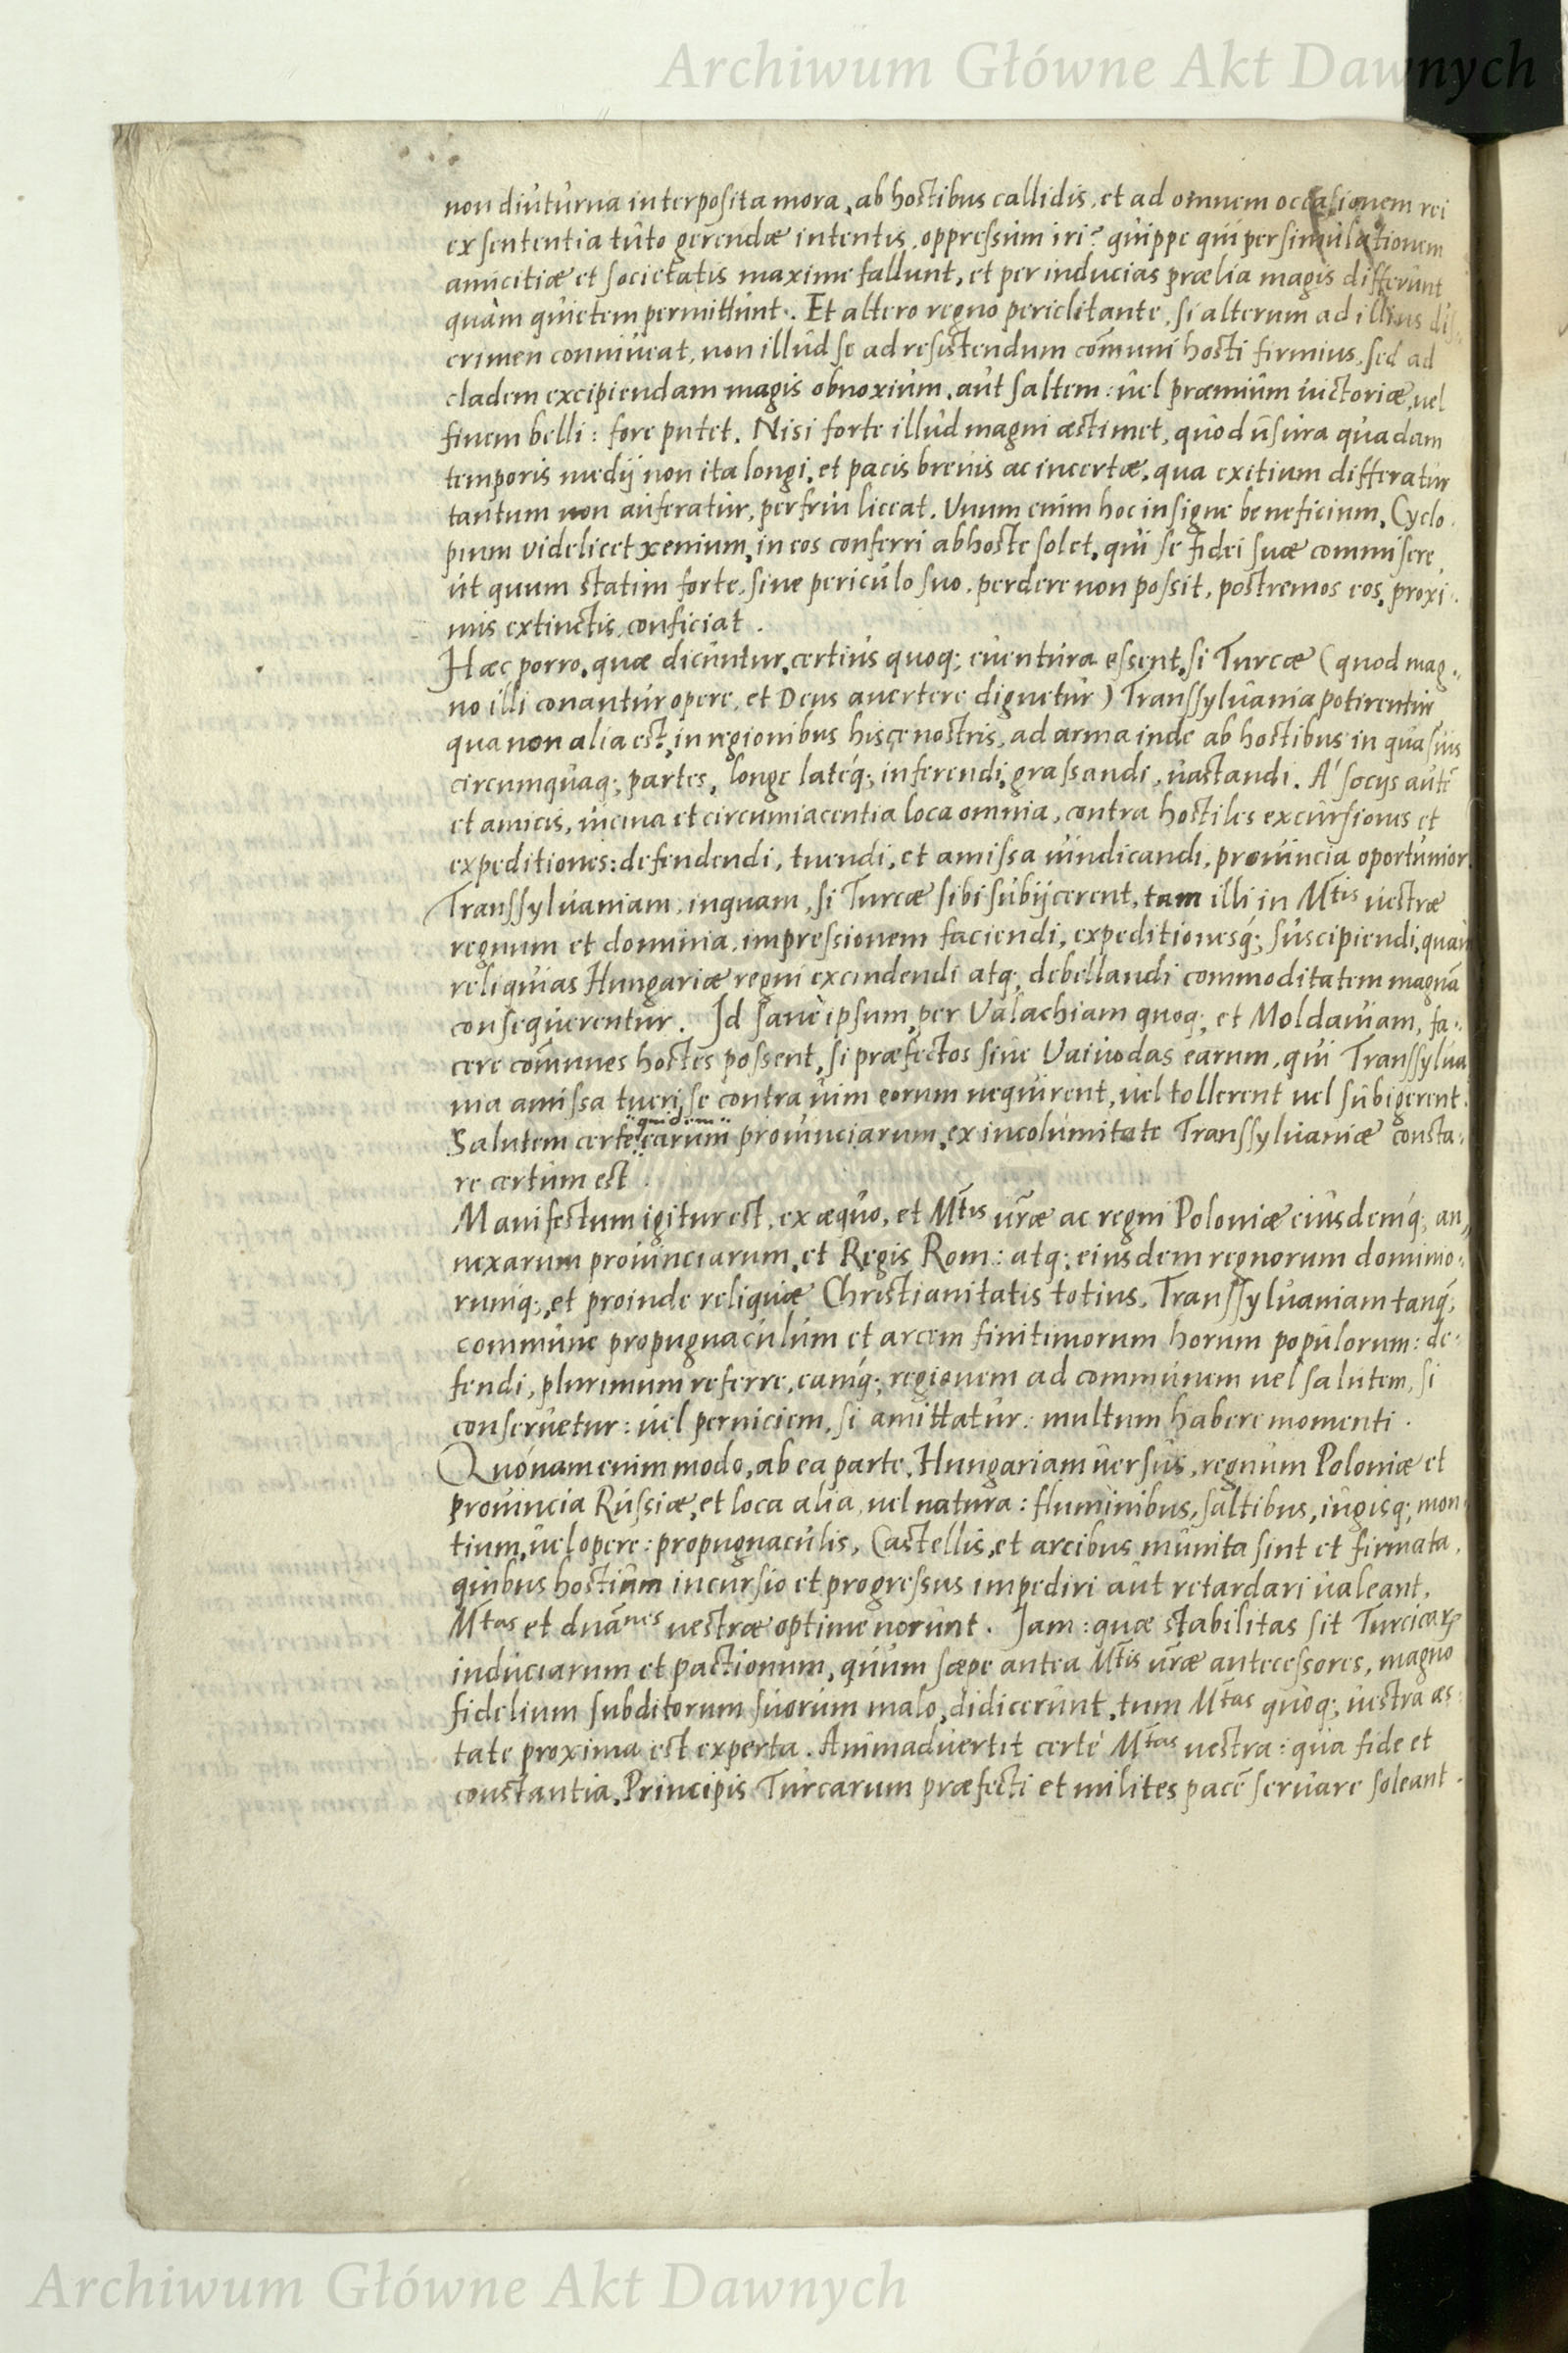 Archiwum Główne Akt Dawnych
non diuturna interposita mora, ab hostibus callidis, et ad omnem occasionem rei
ex sententia tuto gerendæ intentis, oppressum iri? quippe qui per simulationem
amicitiæ et societatis maxime fallunt, et per inducias prælia magis differunt
quàm quietem permittunt. Et altero regno periclitante, si alterum ad illius dis,,
crimen conniveat, non illud se ad resistendum com̄uni hosti firmius, sed ad
cladem excipiendam magis obnoxium, aut saltem: uel præmium uictoriæ, uel
finem belli: fore putet. Nisi forte illud magni æstimet, quod usura quadam
temporis medij non ita longi, et pacis brevis ac incertæ, qua exitium differatur
tantum non auferatur, perfrui liceat. Unum enim hoc insigne beneficium, Cyclo.
pium videlicet xenium, in eos conferri ab hoste solet, qui se fidei suæ commisere,
ut quum statim forte, sine periculo suo, perdere non possit, postremos eos, proxi..
mis extinctis, conficiat.
Hæc porro, quæ dicuntur, certius quoq; euentura essent, si Turcæ (quod mag..
no illi conantur opere, et Deus auertere dignetur) Transsyluania potirentur
qua non alia est, in regionibus hisce nostris, ad arma inde ab hostibus in quasuis
circumquaq; partes, longe latéq; inferendi, grassandi, uastandi. A' socys autē
et amicis, uicina et circumiacentia loca omnia, contra hostiles excursiones et
expeditiones: defendendi, tuendi, et amissa uindicandi, prouincia oportunior.
Transsyluaniam, inquam, si Turcæ sibi subijcerent, tam illi in Mtis uestræ
regnum et dominia, impressionem faciendi, expeditionesq́; suscipiendi, quam
reliquias Hungariæ regni excindendi atq; debellandi commoditatem magnā
consequerentur. Id sane ipsum, per Valachiam quoq; et Moldaviam, fa..
cere com̄unes hostes possent, si præfectos siue Vaiuodas earum, qui Transsylua
nia amissa tueri se contra uim eorum nequirent, uel tollerent uel subigerent.
quidem
Salutem certe earum prouinciarum, ex incolumitate Transsyluaniæ consta..
re certum est.
Manifestum igitur est, ex æquo, et Mtis vr̄æ ac regni Poloniæ eiusdemq́; an,,
nexarum prouinciarum, et Regis Rom: atq; eiusdem regnorum dominio..
rumq;, et proinde reliquiæ Christianitatis totius, Transsyluaniam tanq́;
commune propugnaculum et arcem finitimorum horum populorum: de..
fendi, plurimum referre, eamq́; regionem ad communem uel salutem, si
conseruetur: uel perniciem, si amittatur: multum habere momenti.
Quónam enim modo, ab ea parte, Hungariam uersus, regnum Poloniæ et
prouincia Russiæ, et loca alia, uel natura: fluminibus, saltibus, iugisq; mon
tium, uel opere: propugnaculis, Castellis, et arcibus munita sint et firmata,
quibus hostium incursio et progressus impediri aut retardari ualeant,
Mtas et dnāōnes uestræ optime norunt. Jam: quæ stabilitas sit Turcicarꝝ
induciarum et pactionum, quum sæpe antea Mtis ur̄æ antecessores, magno
fidelium subditorum suorum malo, didicerunt, tum Mtas quoq; uestra æs
tate proxima est experta. Animaduertit certé Mtas uestra: qua fide et
constantia, Principis Turcarum præfecti et milites pacē seruare soleant.
Archiwum Główne Akt Dawnych